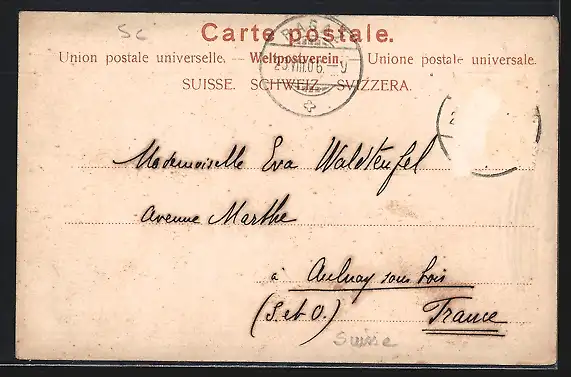 SC
Carte postale.
Union postale universelle. — Weltpostverein. — Unione postale universale.
SUISSE. SCHWEIZ. SVIZZERA.
Mademoiselle Eva Waldteufel
Avenue Marthe
à Aulnay sous bois
(S et O.) France
Suisse